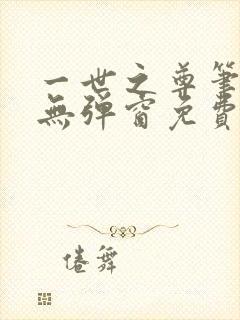 一世之尊筆
無彈窗免費
倦舞